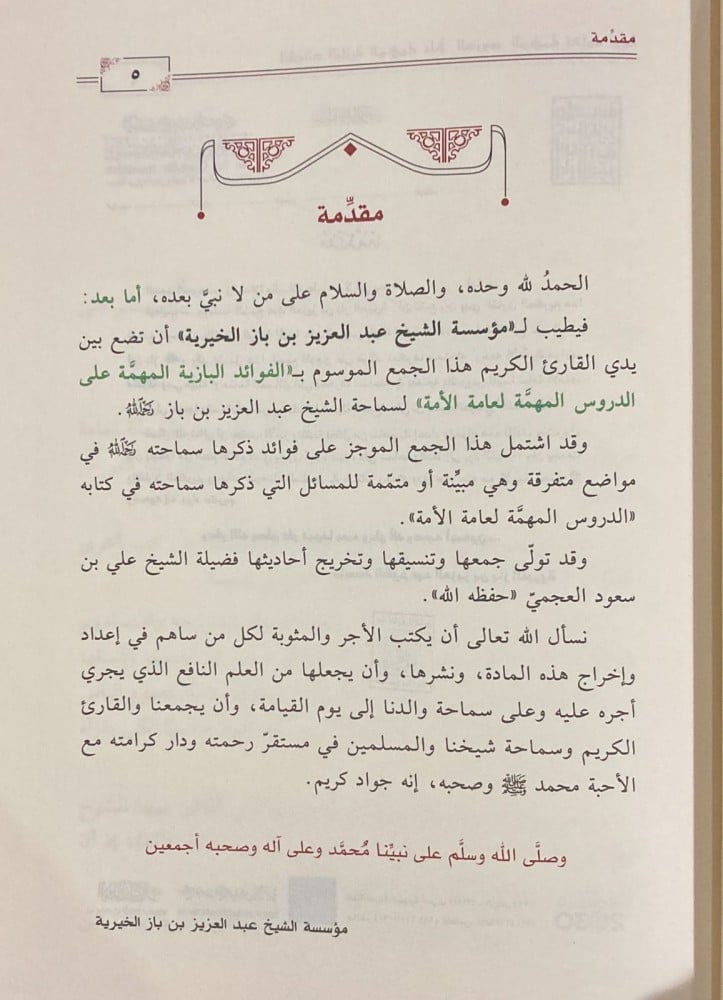 مقدِّمة
٥
مقدِّمة
الحمدُ لله وحده، والصلاة والسلام على من لا نبيَّ بعده، أما بعد:
فيطيب لـ«مؤسسة الشيخ عبد العزيز بن باز الخيرية» أن تضع بين
يدي القارئ الكريم هذا الجمع الموسوم بـ«الفوائد البازية المهمَّة على
الدروس المهمَّة لعامة الأمة» لسماحة الشيخ عبد العزيز بن باز رَحِمَهُ اللهُ.
وقد اشتمل هذا الجمع الموجز على فوائد ذكرها سماحته رَحِمَهُ اللهُ في
مواضع متفرقة وهي مبيِّنة أو متمّمة للمسائل التي ذكرها سماحته في كتابه
«الدروس المهمَّة لعامة الأمة».
وقد تولّى جمعها وتنسيقها وتخريج أحاديثها فضيلة الشيخ علي بن
سعود العجميّ «حفظه الله».
نسأل الله تعالى أن يكتب الأجر والمثوبة لكل من ساهم في إعداد
وإخراج هذه المادة، ونشرها، وأن يجعلها من العلم النافع الذي يجري
أجره عليه وعلى سماحة والدنا إلى يوم القيامة، وأن يجمعنا والقارئ
الكريم وسماحة شيخنا والمسلمين في مستقرّ رحمته ودار كرامته مع
الأحبة محمد ﷺ وصحبه، إنه جواد كريم.
وصلَّى الله وسلَّم على نبيِّنا مُحمَّد وعلى آله وصحبه أجمعين
مؤسسة الشيخ عبد العزيز بن باز الخيرية